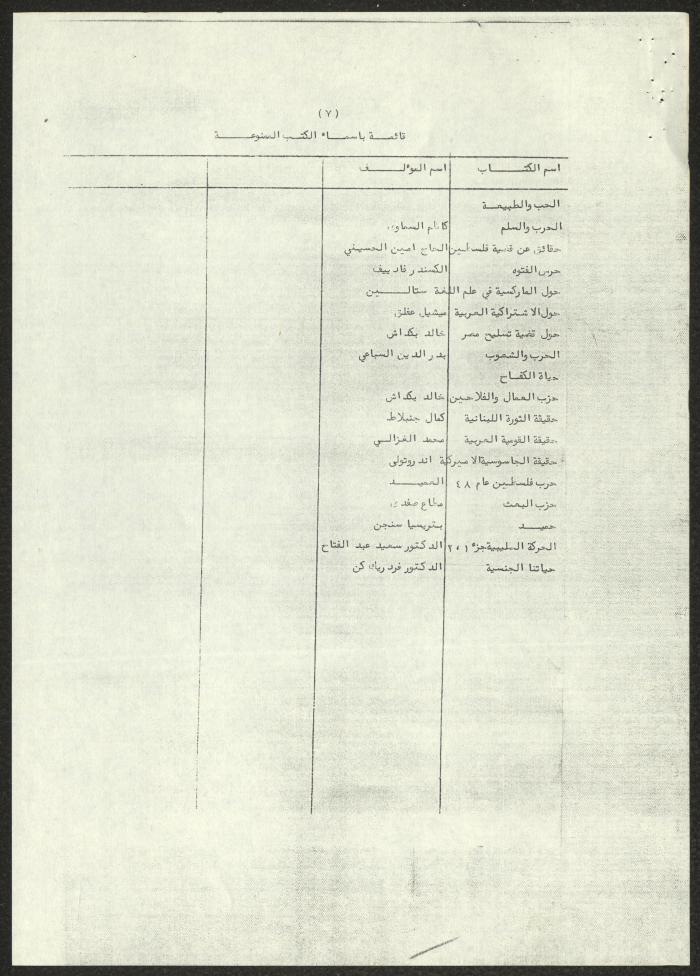 (٧)
قائمة باسماء الكتب الممنوعة
اسم الكتاب اسم المؤلف
الحب والطبيعة
الحرب والسلم كاظم السماوى
حقائق عن قضية فلسطين الحاج امين الحسيني
حرس الفتوه الكسندر فادييف
حول الماركسية في علم اللغة ستالين
حول الاشتراكية العربية ميشيل عفلق
حول قضية تسليح مصر خالد بكداش
الحرب والشعوب بدر الدين السباعي
حياة الكفاح
حزب العمال والفلاحين خالد بكداش
حقيقة الثورة اللبنانية كمال جنبلاط
حقيقة القومية العربية محمد الغزالي
حقيقة الجاسوسية الاميركية اندروتولى
حرب فلسطين عام ٤٨ العميد
حزب البعث مطاع صفدى
حميد بتريسيا سنجن
الحركة الصليبية جزء ١، ٢ الدكتور سعيد عبد الفتاح
حياتنا الجنسية الدكتور فردريك كن